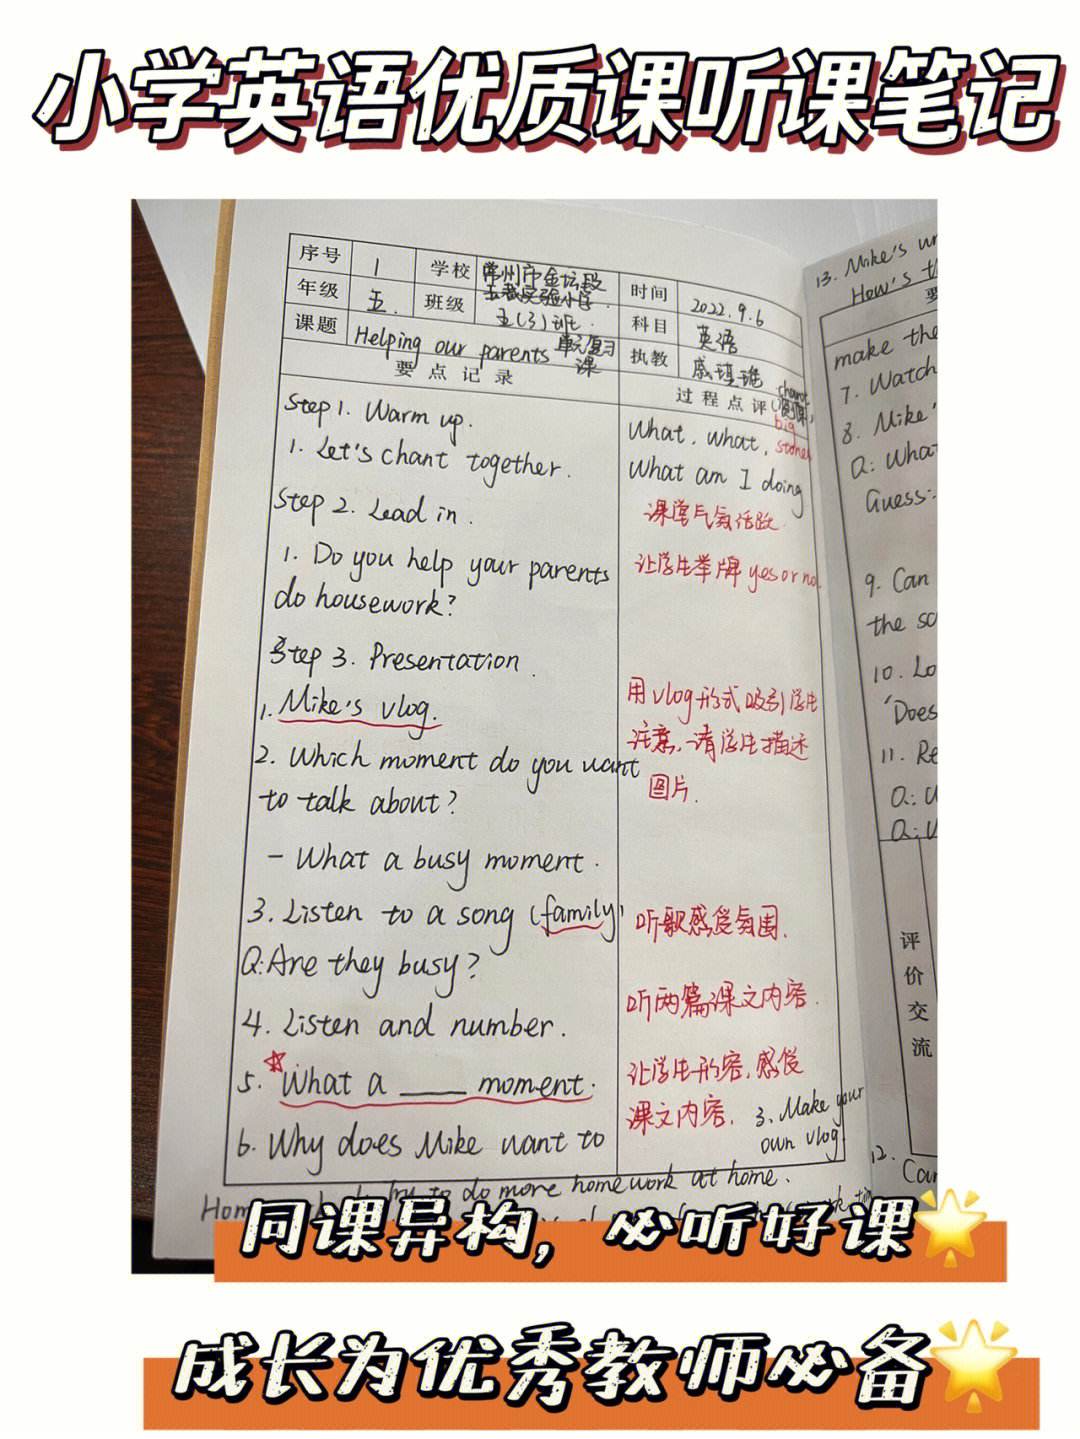 小学英语优质课听课笔记
序号 1 学校 常州市金坛段
实验小学
时间 2022.9.6
年级 五. 班级 五(3)班.
科目 英语
课题 Helping our parents 单元复习课
执教
要点记录
过程点评
Step 1. Warm up.
1. Let's chant together.
Step 2. Lead in.
1. Do you help your parents
do housework?
Step 3. Presentation.
1. Mike's vlog.
2. Which moment do you want
to talk about?
- What a busy moment.
3. Listen to a song (family)
Q: Are they busy?
4. Listen and number.
5. What a ____ moment.
6. Why does Mike want to
chant
big
What, what,
What am I doing
课堂气氛活跃.
让学生举牌 yes or no.
用vlog形式吸引学生
注意,请学生描述
图片.
听歌感受氛围.
听两篇课文内容.
让学生形容,感受
课文内容.
3. Make your
own vlog.
to do more homework at home.
13. Mike's
How's
make the
7. Watch
8. Mike'
Q: What
Guess:
9. Can
the
10. Lo
'Does
11. Re
Q:
Q:
评价交流
12.
同课异构，必听好课
成长为优秀教师必备